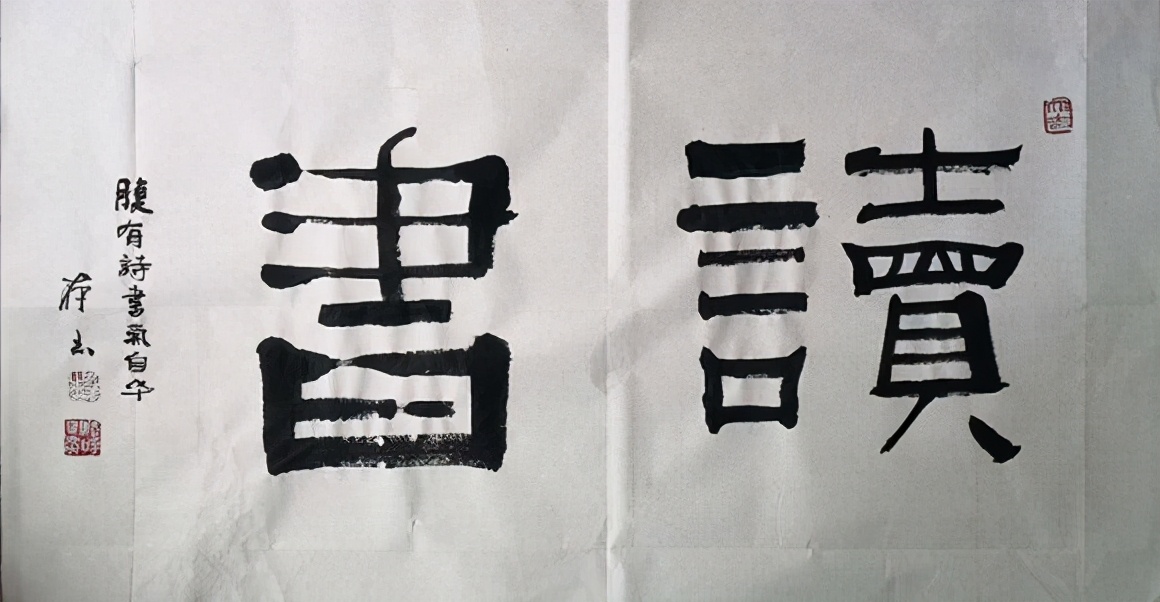 讀書
腹有詩書氣自华